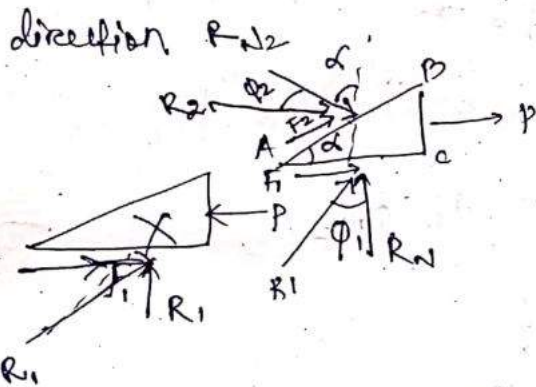 direction R_N2
α'
φ2
B
R2
F2
A
α
P
F1
C
P
φ1
R_N
R1
F1
R1
R1